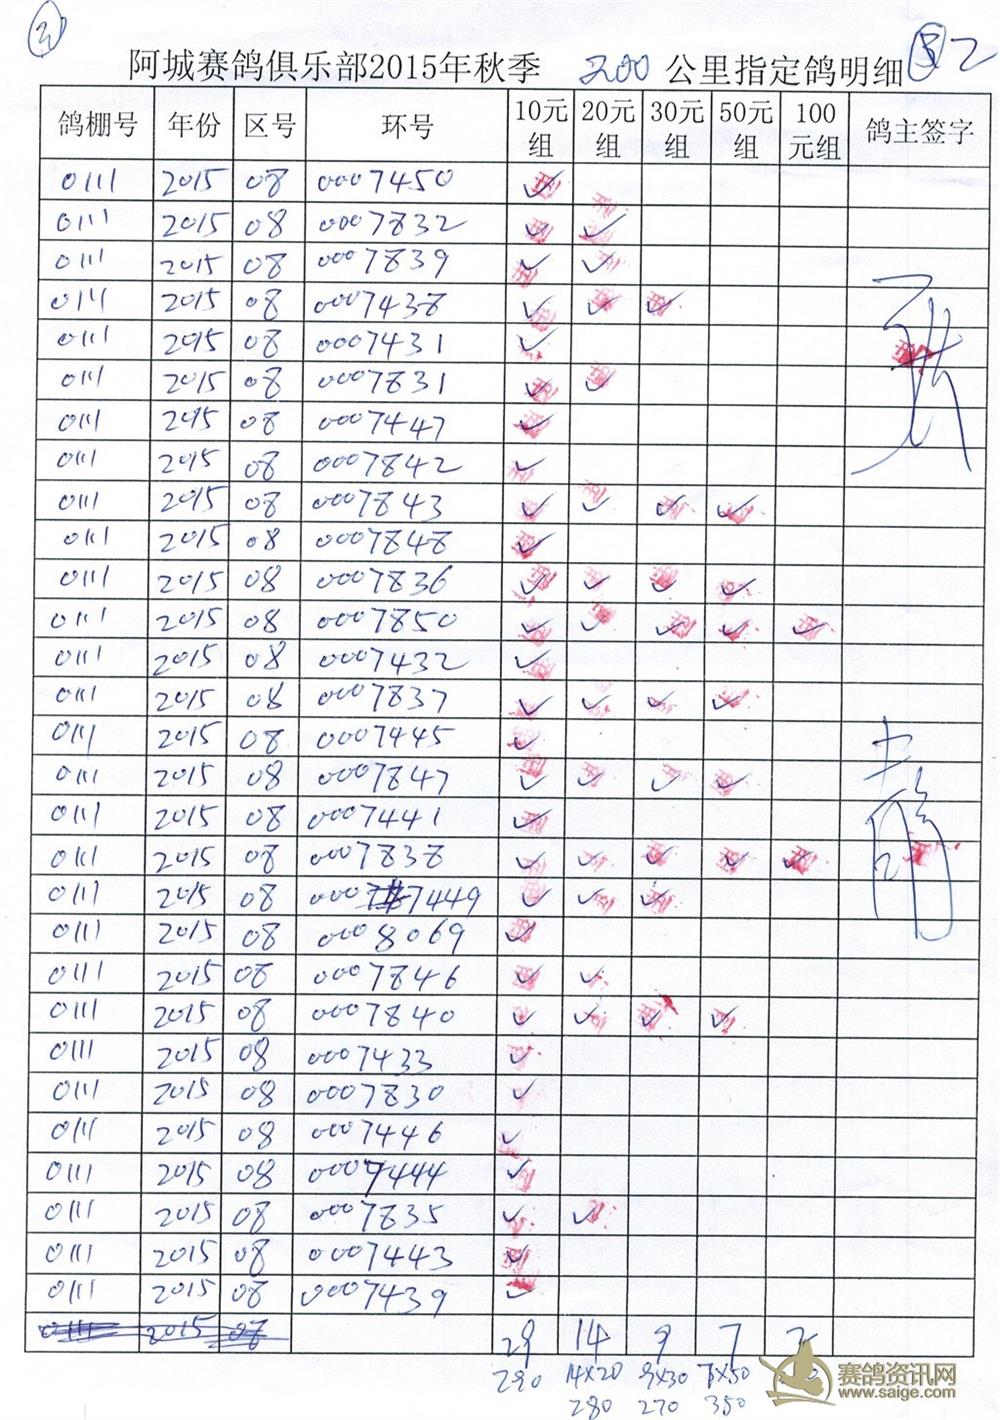 阿城赛鸽俱乐部2015年秋季 200 公里指定鸽明细 2
鸽棚号 年份 区号 环号 10元组 20元组 30元组 50元组 100元组 鸽主签字
0111 2015 08 0007450 ✓
0111 2015 08 0007832 ✓ ✓
0111 2015 08 0007839 ✓ ✓
0111 2015 08 0007438 ✓ ✓ ✓
0111 2015 08 0007431 ✓
0111 2015 08 0007831 ✓ ✓
0111 2015 08 0007447 ✓
0111 2015 08 0007842 ✓
0111 2015 08 0007843 ✓ ✓ ✓ ✓
0111 2015 08 0007848 ✓
0111 2015 08 0007836 ✓ ✓ ✓ ✓
0111 2015 08 0007850 ✓ ✓ ✓ ✓ ✓
0111 2015 08 0007432 ✓
0111 2015 08 0007837 ✓ ✓ ✓ ✓
0111 2015 08 0007445 ✓
0111 2015 08 0007847 ✓ ✓ ✓ ✓
0111 2015 08 0007441 ✓
0111 2015 08 0007838 ✓ ✓ ✓ ✓ ✓
0111 2015 08 0007449 ✓ ✓ ✓
0111 2015 08 0008069 ✓
0111 2015 08 0007846 ✓ ✓
0111 2015 08 0007840 ✓ ✓ ✓ ✓
0111 2015 08 0007433 ✓
0111 2015 08 0007830 ✓
0111 2015 08 0007446 ✓
0111 2015 08 0007444 ✓
0111 2015 08 0007835 ✓ ✓
0111 2015 08 0007443 ✓
0111 2015 08 0007439 ✓
0111 2015 08 29 14 9 7 2
290 14×20 9×30 7×50
280 270 350
赛鸽资讯网
www.saige.com